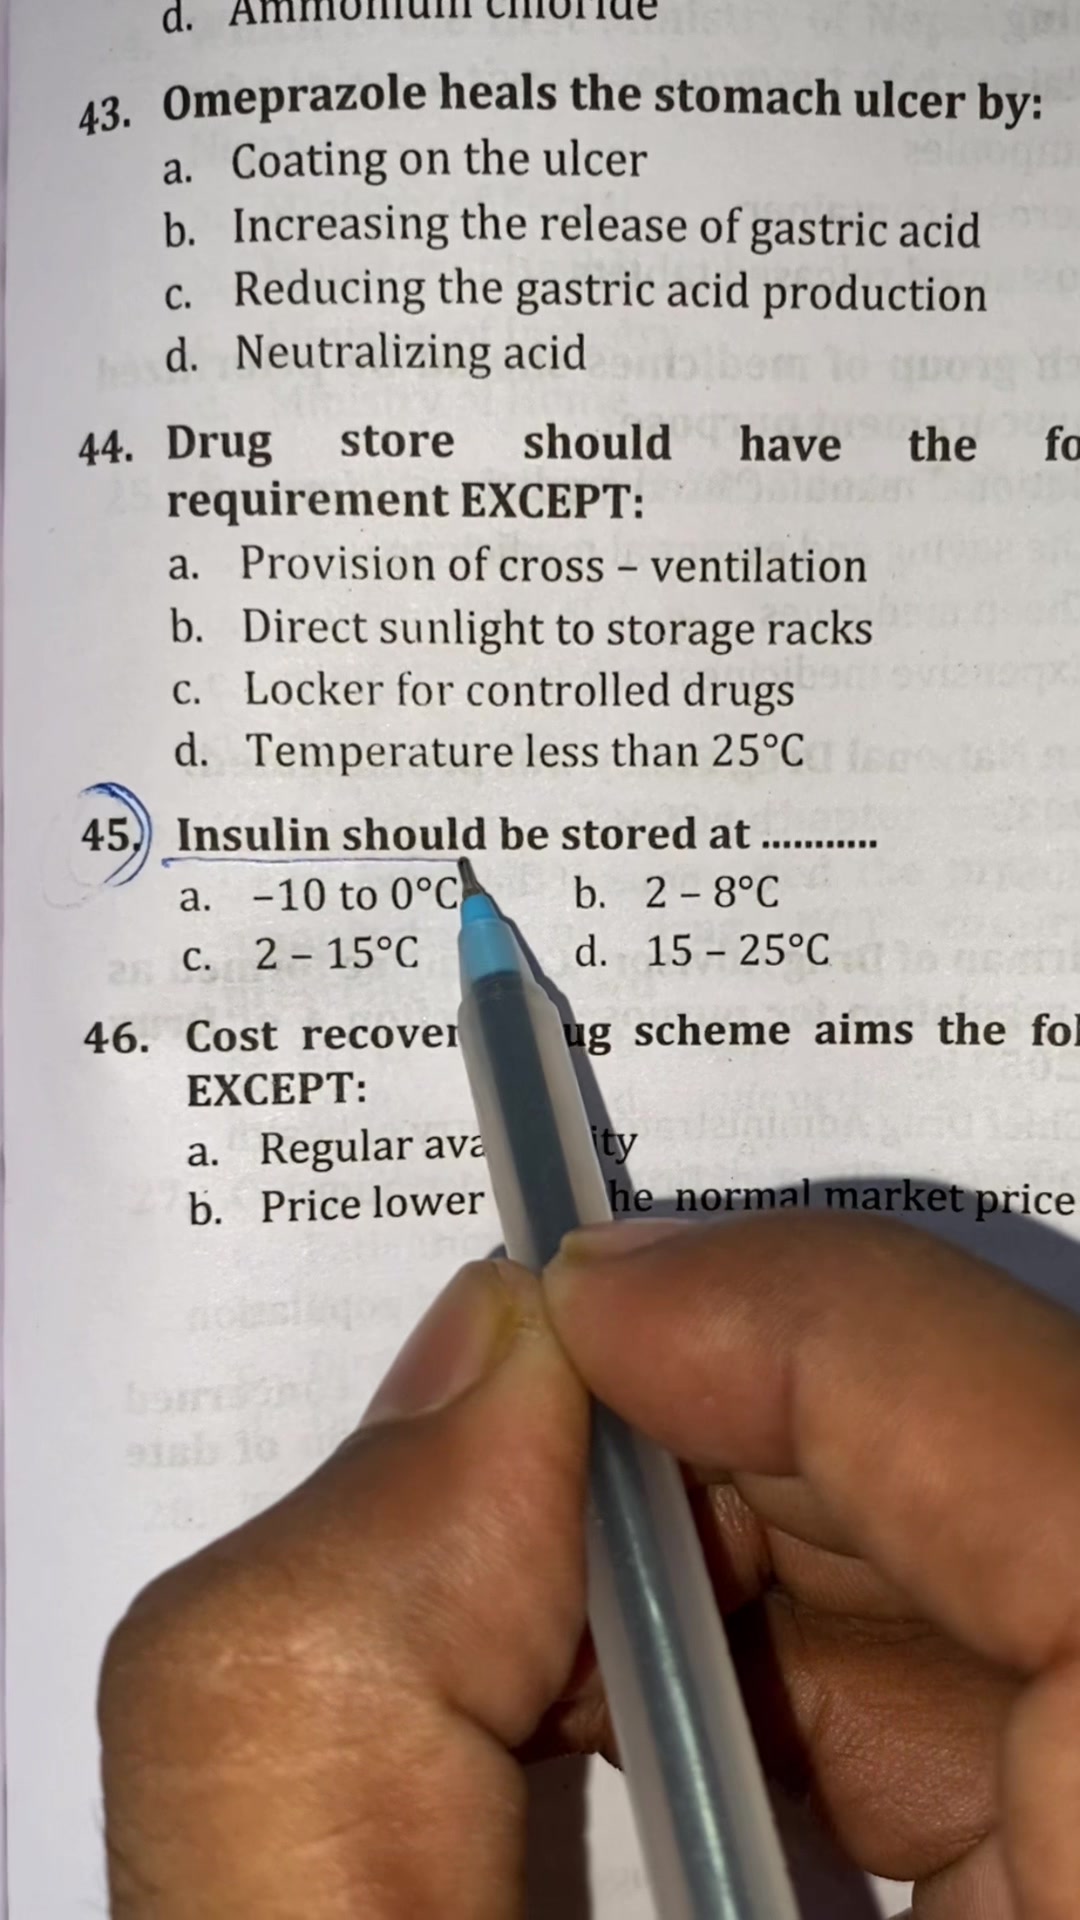 d. Ammonium chloride
43. Omeprazole heals the stomach ulcer by:
a. Coating on the ulcer
b. Increasing the release of gastric acid
c. Reducing the gastric acid production
d. Neutralizing acid
44. Drug store should have the
requirement EXCEPT:
a. Provision of cross – ventilation
b. Direct sunlight to storage racks
c. Locker for controlled drugs
d. Temperature less than 25°C
45. Insulin should be stored at ...........
a. –10 to 0°C b. 2 – 8°C
c. 2 – 15°C d. 15 – 25°C
46. Cost scheme aims the
EXCEPT:
a. Regular
b. Price lower normal market price